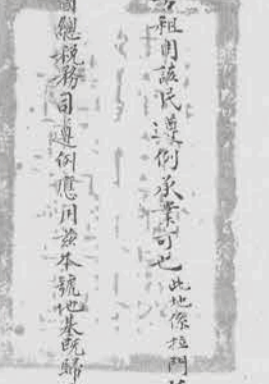 祖開該民遵例承業可也此地係拉門
總稅務司遵例應用茲本號地基既歸